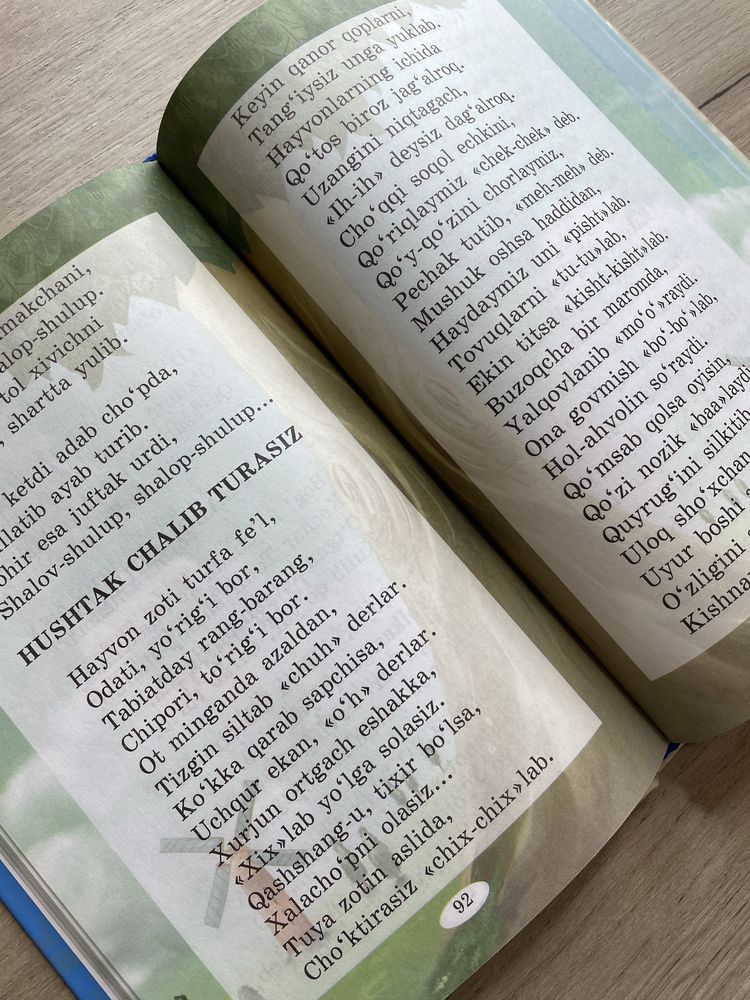 makchani,
alop-shulup.
tol xivichni
, shartta yulib.
ketdi adab cho‘pda,
llatib ayab turib.
ohir esa juftak urdi,
Shalov-shulup, shalop-shulup...
HUSHTAK CHALIB TURASIZ
Hayvon zoti turfa fe’l,
Odati, yo‘rig‘i bor,
Tabiatday rang-barang,
Chipori, to‘rig‘i bor.
Ot minganda azaldan,
Tizgin siltab «chuh» derlar.
Ko‘kka qarab sapchisa,
Uchqur ekan, «o‘h» derlar.
Xurjun ortgach eshakka,
«Xix»lab yo‘lga solasiz.
Qashshang-u, tixir bo‘lsa,
Xalacho‘pni olasiz...
Tuya zotin aslida,
Cho‘ktirasiz «chix-chix»lab.
92
Keyin qanor qoplarni,
Tang‘iysiz unga yuklab.
Hayvonlarning ichida
Qo‘tos biroz jag‘alroq.
Uzangini niqtagach,
«Ih-ih» deysiz dag‘alroq.
Cho‘qqi soqol echkini,
Qo‘riqlaymiz «chek-chek» deb.
Qo‘y-qo‘zini chorlaymiz,
Pechak tutib, «meh-meh» deb.
Mushuk oshsa haddidan,
Haydaymiz uni «pisht»lab.
Tovuqlarni «tu-tu»lab,
Ekin titsa «kisht-kisht»lab.
Buzoqcha bir maromda,
Yalqovlanib «mo‘o‘»raydi.
Ona govmish «bo‘-bo‘»lab,
Hol-ahvolin so‘raydi.
Qo‘msab qolsa oyisin,
Qo‘zi nozik «baa»laydi
Quyrug‘ini silkitib
Uloq sho‘xchan
Uyur boshi
O‘zligini
Kishna